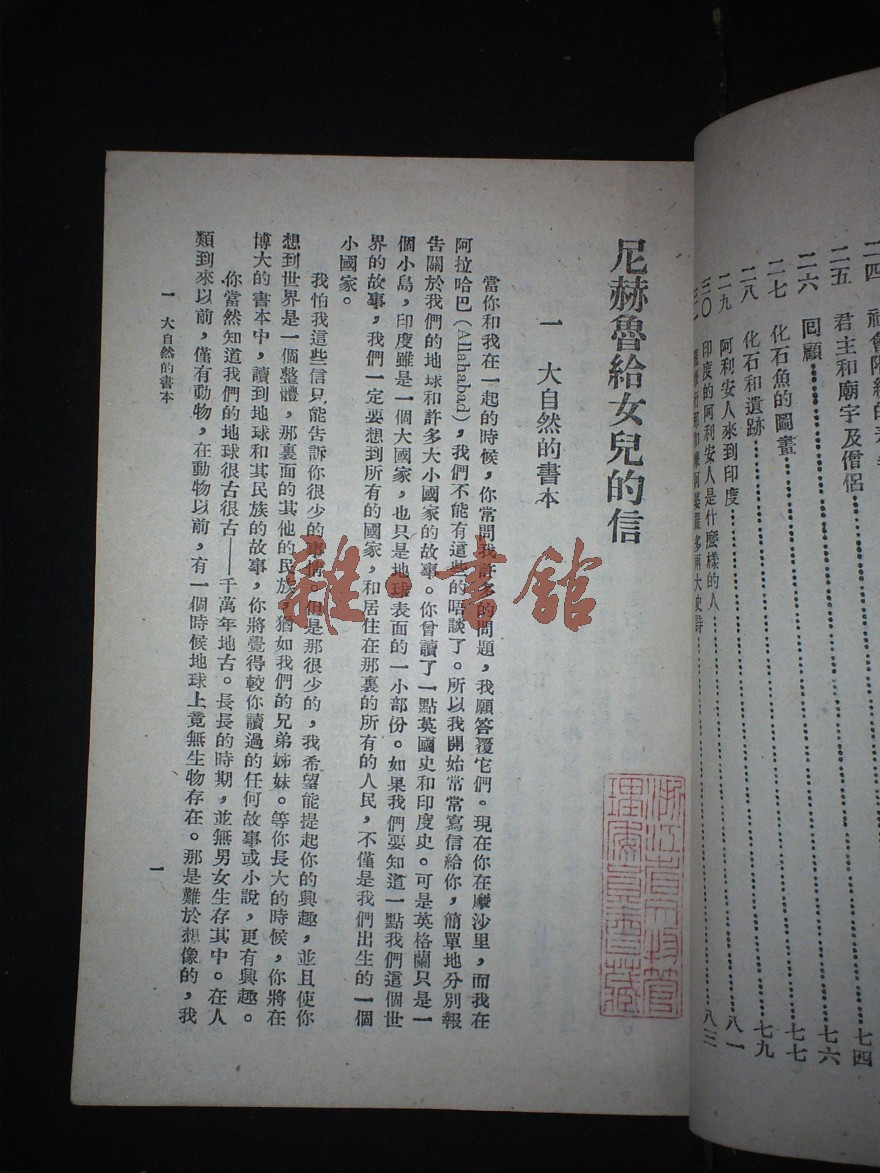 二五　君主和廟宇及僧侶……七四
二六　回顧……七六
二七　化石魚的圖畫……七七
二八　化石和遺跡……七九
二九　阿利安人來到印度……八一
三〇　印度的阿利安人是什麼樣的人……八三
尼赫魯給女兒的信
一　大自然的書本
當你和我在一起的時候，你常問我許多的問題，我願答覆它們。現在你在摩沙里，而我在
阿拉哈巴（Allahabad），我們不能有這些的晤談了。所以我開始常常寫信給你，簡單地分別報
告關於我們的地球和許多大小國家的故事。你曾讀了一點英國史和印度史。可是英格蘭只是一
個小島，印度雖是一個大國家，也只是地球表面的一小部份。如果我們要知道一點我們這個世
界的故事，我們一定要想到所有的國家，和居住在那裏的所有的人民，不僅是我們出生的一個
小國家。
我怕我這些信只能告訴你很少的事情。但是那很少的，我希望能提起你的興趣，並且使你
想到世界是一個整體，那裏面的其他的民族，猶如我們的兄弟姊妹。等你長大的時候，你將在
博大的書本中，讀到地球和其民族的故事，你將覺得較你讀過的任何故事或小說，更有興趣。
你當然知道我們的地球很古很古——千萬年地古。長長的時期，並無男女生存其中。在人
類到來以前，僅有動物，在動物以前，有一個時候地球上竟無生物存在。那是難於想像的，我
一　大自然的書本
一
雜·書館